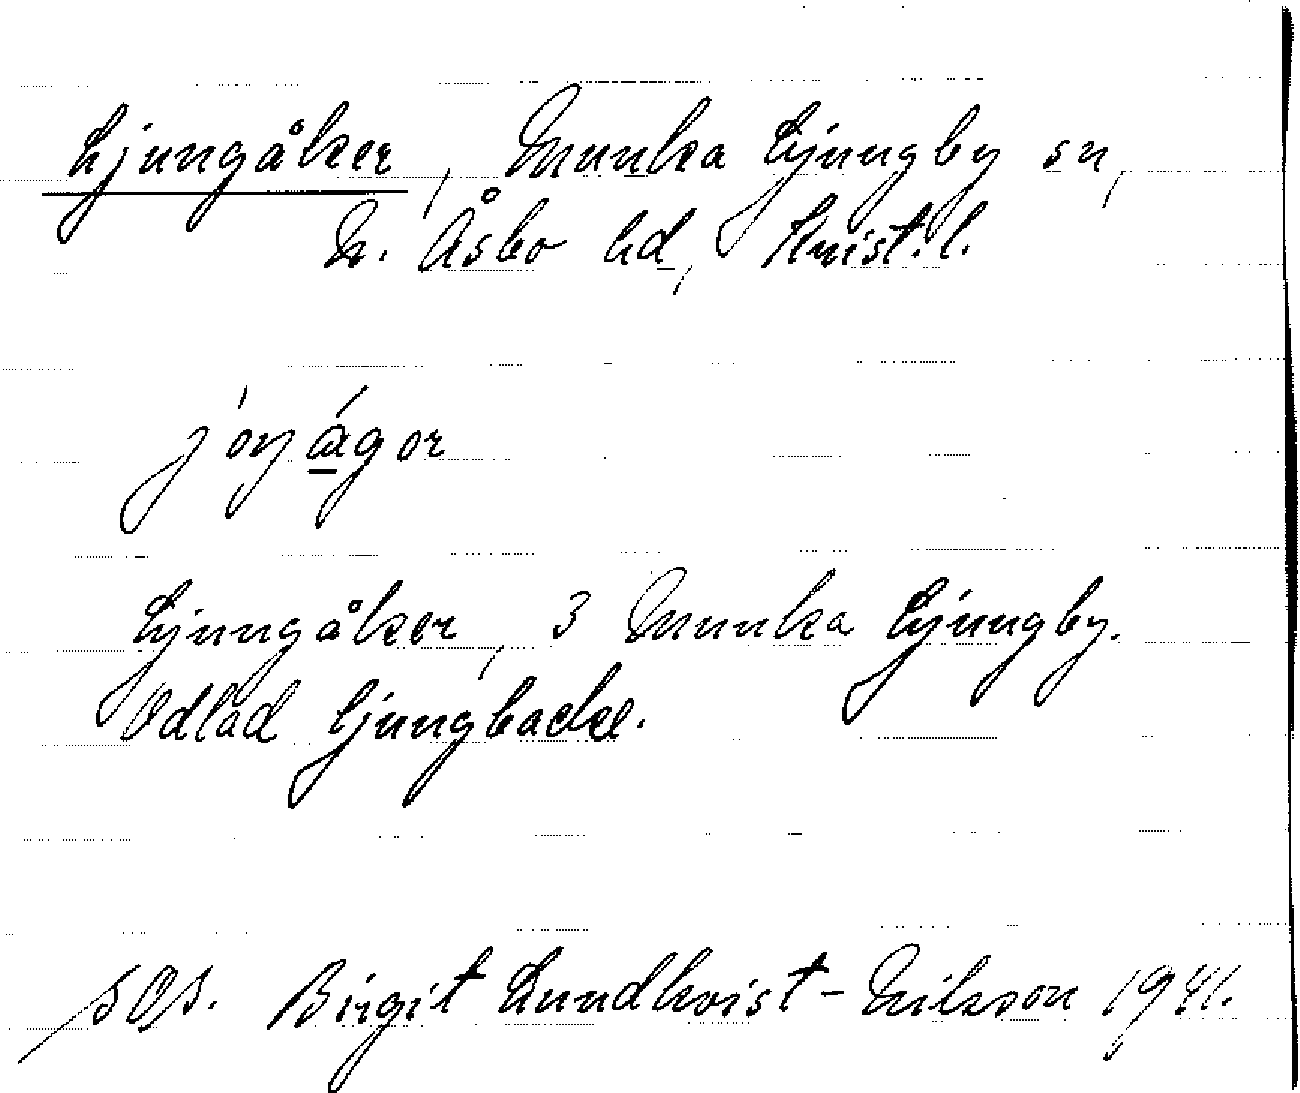 Ljungåker, Munka Ljungby sn,
N. Åsbo hd, Krist. l.
Ljungåker, 3 Munka Ljungby.
Odlad ljungbacke.
Birgit Lundkvist-Nilsson 1941.